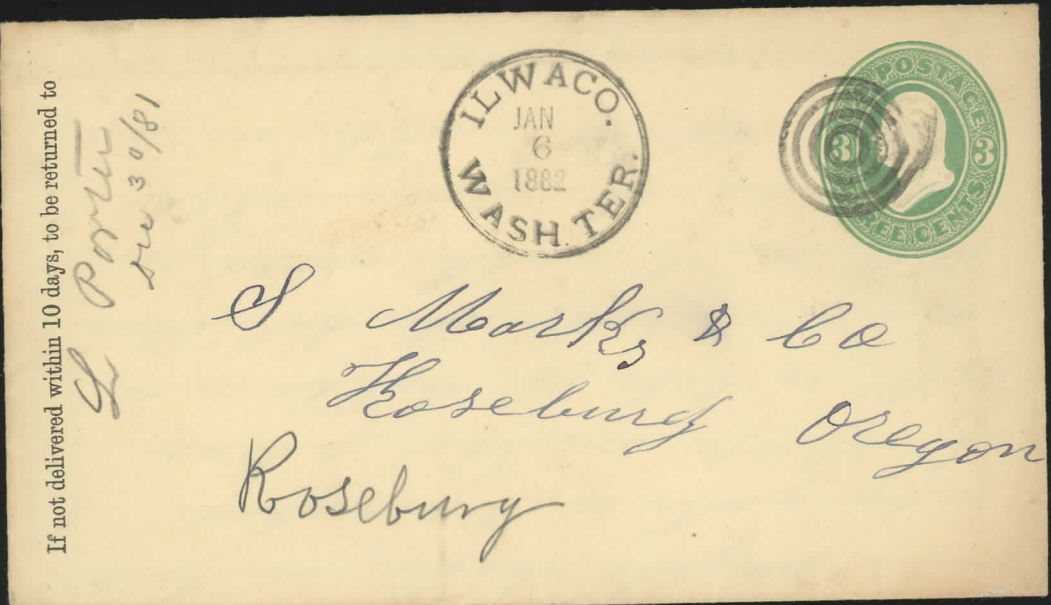 If not delivered within 10 days, to be returned to
L Porter
Dec 30/81
ILWACO.
JAN
6
1882
WASH. TER.
POSTAGE
3 3
EE CENTS
S Marks & Co
Roseburg Oregon
Roseburg